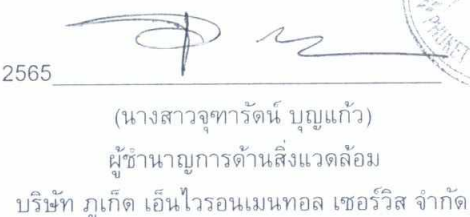 PHUKET
2565
(นางสาวจุฑารัตน์ บุญแก้ว)
ผู้ชำนาญการด้านสิ่งแวดล้อม
บริษัท ภูเก็ต เอ็นไวรอนเมนทอล เซอร์วิส จำกัด